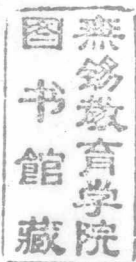 無錫教育学院
图书館藏